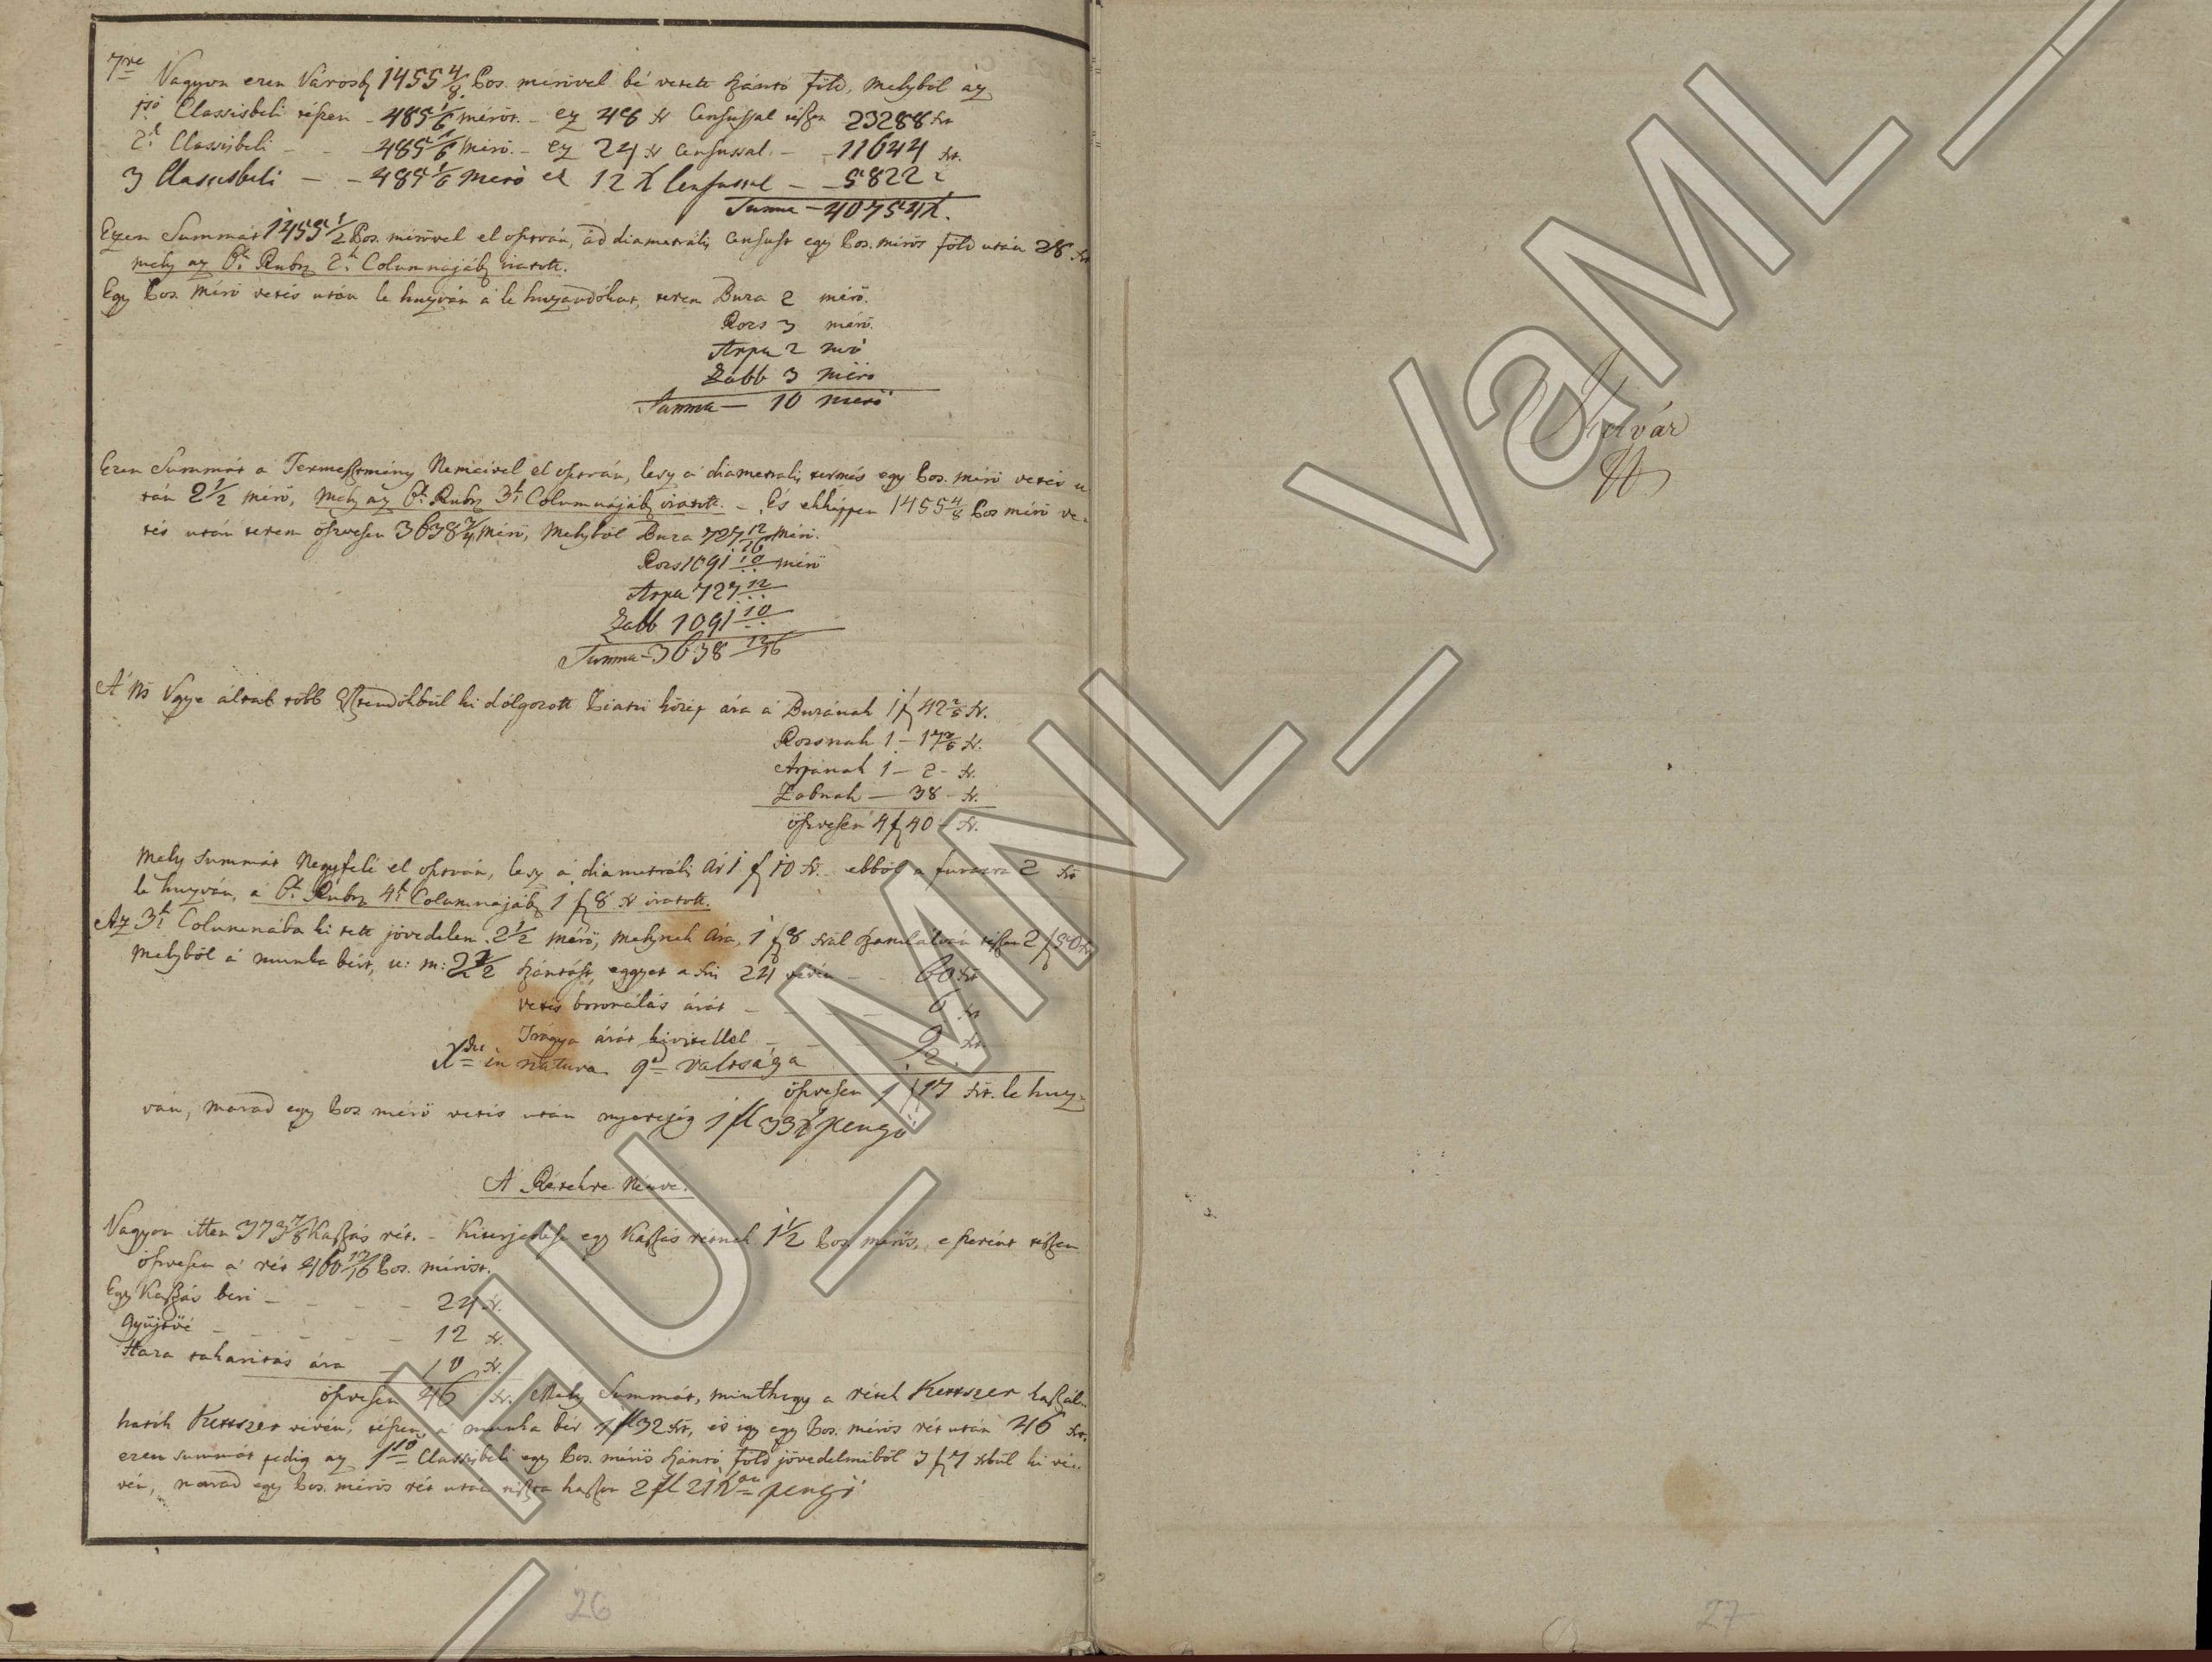 7re Vagyon ezen Városb 1455 4/8 Pos. mérővel bé vetett szántó föld, melyből az
1ső Classisbeli tészen - 485 1/6 mérőt. - ez 48 xr Censussal tészen 23288 xr
2k Classisbeli - - 485 1/6 mérő. - ez 24 xr censussal - - 11644 xr.
3 Classisbeli - - 485 1/6 mérő ez 12 X Censussal - - 5822
Summa - 40754 X.
Ezen Summát 1455 1/2 Pos. mérővel el osztván, ád diametrális censust egy Pos. mérős föld után 28 xr
mely az 6k Rubr 2k Columnájáb iratott.
Egy Pos. mérő vetés után le húzván a le huzandókat, terem Buza 2 mérő.
Rozs 3 mérő.
Arpa 2 mérő
Zabb 3 mérő
Summa - 10 mérő
Ezen Summát a Termesztmény Nemeivel el osztván, lesz a diametralis termés egy Pos. mérő vetés u
tán 2 1/2 mérő, mely az 6k Rubr 3k Columnájáb iratott. - És ekképpen 1455 4/8 Pos mérő ve-
tés után terem öszvesen 3638 3/4 mérő, melyből Buza 727 12/16 mérő.
Rozs 1091 10/.. mérő
Arpa 727 12/..
Zabb 1091 10/..
Summa - 3638 12/16
A Ns Vgye által több Esztendőkbűl ki dolgozott Piatzi közép ára a Buzának 1 f 42 2/5 xr.
Rozsnak 1 - 17 xr.
Arpának 1 - 2 - xr.
Zabnak - 38 - xr.
öszvesen 4 f 40 - xr.
Mely summát Negyfelé el osztván, lesz a diametrális ár 1 f 10 xr. ebből a fuvarra 2 xr
le huzván, a 6k Rubr 4k Columnájáb 1 f 8 xr iratott.
Az 3k Columnába ki tett jövedelem 2 1/2 mérő, melynek ára, 1 f 8 xrál számlálván tészen 2 f 50 xr
melyből a munka bért, u: m: 2 1/2 szántást, eggyet a xri 24 vévén - - 60 xr
vetés boronálás árát - - - - 6 xr
Trágya árát kivitellel - - 9/2 xr.
X in natura 9 valtsága
öszvesen 1 f 17 xr. le huz-
ván, marad egy Pos mérő vetés után nyereség 1 fl 33 X pengő
A Rétekre Nézve.
Vagyon itten 373 Kaszás rét. - Kiterjedése egy Kaszás rétnek 1 1/2 Pos. mérős, e szerént tészen
öszvesen a rét 460 Pos. mérőst.
Egy Kaszás béri - - - - 24 xr.
gyüjtőé - - - - - 12 xr.
Haza takaritás ára - 10 xr.
öszvesen 46 xr. Mely Summát, minthogy a rétek Kettszer kaszál-
hatók Kettszer vévén, tészen a munka bér 1 fl 32 xr, és igy egy Pos. mérős rét után 46 xr.
ezen summát pedig az 1ső Classisbeli egy Pos. mérős szántó föld jövedelmiből 3 f 7 xrbűl ki vé-
vén, marad egy Pos. mérős rét után tiszta haszon 2 fl 21 X pengő
26
27
HU_MNL_VaML_